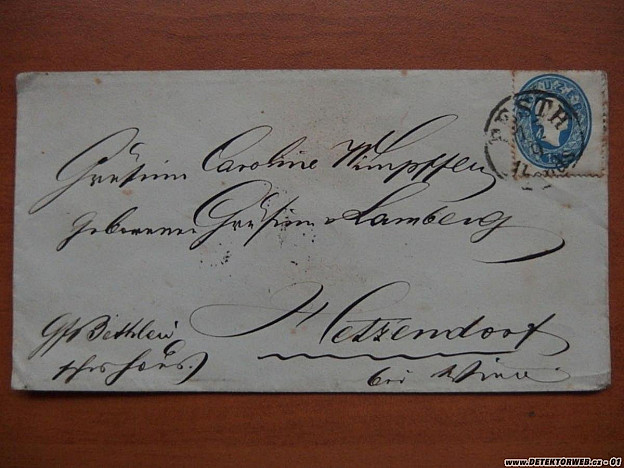 PESTH
Gräfinn Caroline Wimpffen
geborene Gräfinn Lamberg
Hetzendorf
bei Wien
Gf Bethlen
sches Haus.
www.DETEKTORWEB.cz - 01